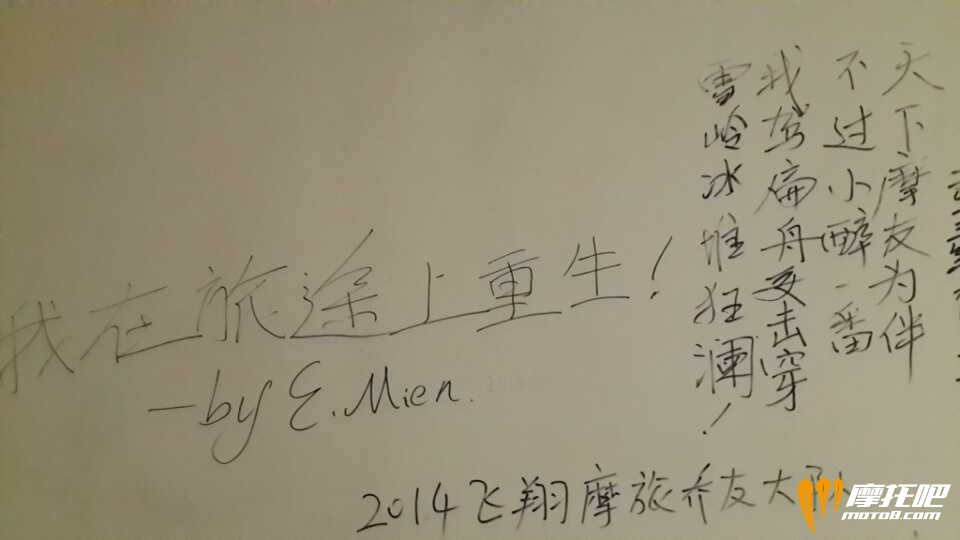 我在旅途上重生!
—by E.Mien.
天下摩友为伴
不过小醉一番
我驾扁舟要击穿
雪岭冰堆狂澜!
2014飞翔摩旅乔友大队
摩托吧
moto8.com